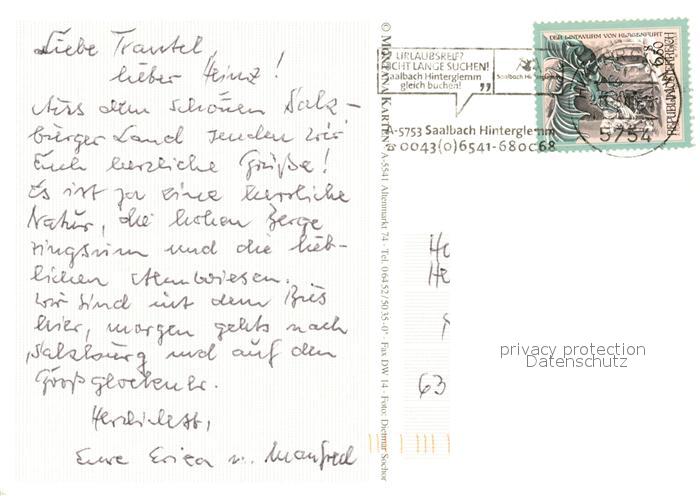 Liebe Trautel,
lieber Heinz!
Aus dem schönen Salz-
burger Land senden wir
Euch herzliche Grüße!
Es ist ja eine herrliche
Natur, die hohen Berge
ringsum und die lieb-
lichen Almwiesen.
Wir sind mit dem Bus
hier, morgen gehts nach
Salzburg und auf den
Großglockner.
Herzlichst,
Eure Erica u. Manfred
© MONTANA KARTEN · A-5541 Altenmarkt 74 · Tel. 06452/5035-0* · Fax DW 14 · Foto: Dietmar Sochor
URLAUBSREIF?
NICHT LANGE SUCHEN!
Saalbach Hinterglemm
gleich buchen!
Saalbach Hinterglemm
A-5753 Saalbach Hinterglemm
0043(0)6541-680068
DER LINDWURM VON KLAGENFURT
6.50
REPUBLIK ÖSTERREICH
5754
63
privacy protection
Datenschutz